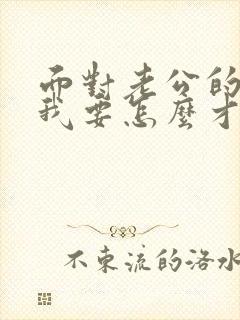 而對老公的
我要怎麼才
不東流的洛水